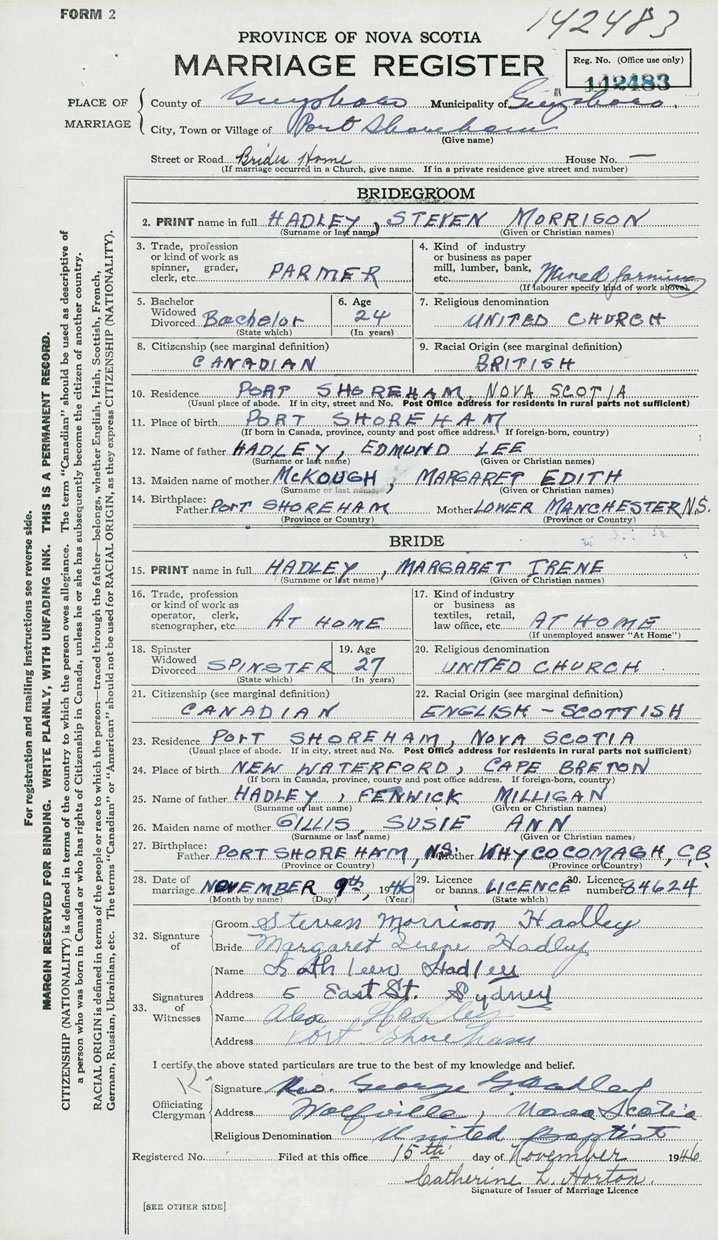 FORM 2
142483
PROVINCE OF NOVA SCOTIA
MARRIAGE REGISTER
Reg. No. (Office use only)
142483
PLACE OF MARRIAGE
County of Guysboro Municipality of Guysboro.
City, Town or Village of Port Shoreham
(Give name)
Street or Road Brides Home House No. —
(If marriage occurred in a Church, give name. If in a private residence give street and number)
BRIDEGROOM
2. PRINT name in full HADLEY, STEVEN MORRISON
(Surname or last name) (Given or Christian names)
3. Trade, profession or kind of work as spinner, grader, clerk, etc. FARMER
4. Kind of industry or business as paper mill, lumber, bank, etc. Mixed farming
(If labourer specify kind of work above)
5. Bachelor Widowed Divorced Bachelor
(State which)
6. Age 24
(In years)
7. Religious denomination
UNITED CHURCH
8. Citizenship (see marginal definition)
CANADIAN
9. Racial Origin (see marginal definition)
BRITISH
10. Residence PORT SHOREHAM, NOVA SCOTIA
(Usual place of abode. If in city, street and No. Post Office address for residents in rural parts not sufficient)
11. Place of birth PORT SHOREHAM
(If born in Canada, province, county and post office address. If foreign-born, country)
12. Name of father HADLEY, EDMUND LEE
(Surname or last name) (Given or Christian names)
13. Maiden name of mother McKOUGH, MARGARET EDITH
(Surname or last name) (Given or Christian names)
14. Birthplace: Father PORT SHOREHAM Mother LOWER MANCHESTER N.S.
(Province or Country) (Province or Country)
BRIDE
15. PRINT name in full HADLEY, MARGARET IRENE
(Surname or last name) (Given or Christian names)
16. Trade, profession or kind of work as operator, clerk, stenographer, etc. AT HOME
17. Kind of industry or business as textiles, retail, law office, etc. AT HOME
(If unemployed answer "At Home")
18. Spinster Widowed Divorced SPINSTER
(State which)
19. Age 27
(In years)
20. Religious denomination
UNITED CHURCH
21. Citizenship (see marginal definition)
CANADIAN
22. Racial Origin (see marginal definition)
ENGLISH - SCOTTISH
23. Residence PORT SHOREHAM, NOVA SCOTIA
(Usual place of abode. If in city, street and No. Post Office address for residents in rural parts not sufficient)
24. Place of birth NEW WATERFORD, CAPE BRETON
(If born in Canada, province, county and post office address. If foreign-born, country)
25. Name of father HADLEY, FENWICK MILLIGAN
(Surname or last name) (Given or Christian names)
26. Maiden name of mother GILLIS, SUSIE ANN
(Surname or last name) (Given or Christian names)
27. Birthplace: Father PORT SHOREHAM, N.S. Mother WHYCOCOMAGH, C.B
(Province or Country) (Province or Country)
28. Date of marriage NOVEMBER 9th, 1946 29. Licence or banns LICENCE 30. Licence number 84624
(Month by name) (Day) (Year) (State which)
32. Signature of
Groom Steven Morrison Hadley
Bride Margaret Irene Hadley
33. Signatures of Witnesses
Name Kathleen Hadley
Address 5 East St. Sydney
Name Alex Hadley
Address Port Shoreham
I certify the above stated particulars are true to the best of my knowledge and belief.
Officiating Clergyman
Signature Rev. George Hadley
Address Wolfville, Nova Scotia
Religious Denomination United Baptist
Registered No. Filed at this office 15th day of November 1946
Catherine L. Horton.
Signature of Issuer of Marriage Licence
[SEE OTHER SIDE]
For registration and mailing instructions see reverse side.
MARGIN RESERVED FOR BINDING. WRITE PLAINLY, WITH UNFADING INK. THIS IS A PERMANENT RECORD.
CITIZENSHIP (NATIONALITY) is defined in terms of the country to which the person owes allegiance. The term "Canadian" should be used as descriptive of
a person who was born in Canada or who has rights of Citizenship in Canada, unless he or she has subsequently become the citizen of another country.
RACIAL ORIGIN is defined in terms of the people or race to which the person—traced through the father—belongs, whether English, Irish, Scottish, French,
German, Russian, Ukrainian, etc. The terms "Canadian" or "American" should not be used for RACIAL ORIGIN, as they express CITIZENSHIP (NATIONALITY).